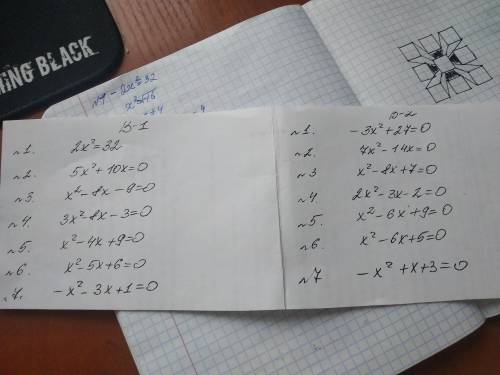 NING BLACK
n1 - 2x²=32
В-1
n1. 2x²=32
n2. 5x²+10x=0
n3. x²-8x-9=0
n4. 3x²-8x-3=0
n5. x²-4x+9=0
n6. x²-5x+6=0
n7. -x²-3x+1=0
В-2
n1. -3x²+27=0
n2. 7x²-14x=0
n3 x²-8x+7=0
n4 2x²-3x-2=0
n5. x²-6x+9=0
n6. x²-6x+5=0
n7 -x²+x+3=0